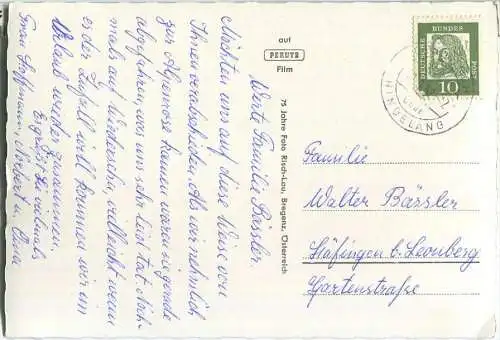 Werte Familie Bässler
Möchten uns auf diese Weise von
Ihnen verabschieden. Als wir nähmlich
zur Alpenrose kamen waren sie gerade
abgefahren, was uns sehr leid tat. Noch-
mals auf Wiedersehn, vielleicht wenn
es der Zufall will kommen wir im
Urlaub wieder zusammen.
Es grüßt Sie vielmals
Frau Hoffmann, Norbert u.
auf
PERUTZ
Film
75 Jahre Foto Risch-Lau, Bregenz, Österreich
DEUTSCHE BUNDESPOST
10
HINGELANG
Familie
Walter Bässler
Höfingen b. Leonberg
Gartenstraße